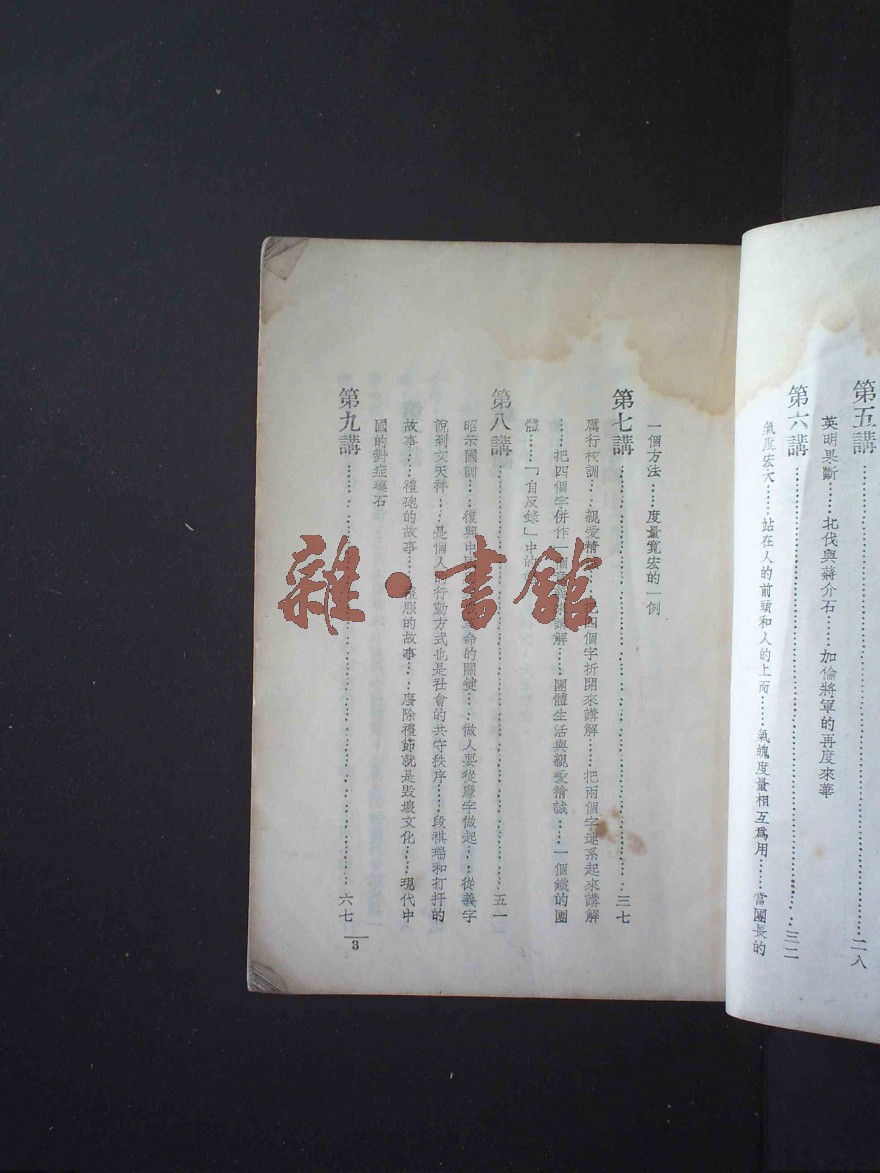 第五講……二八
英明果斷……北伐與蔣介石……加倫將軍的再度來華
第六講……三二
氣度宏大……站在人的前頭和人的上面……氣魄度量相互爲用……當團長的
一個方法……度量寬宏的一例
第七講……三七
厲行校訓……親愛精 把四個字折開來講解……把兩個字連系起來講解
……把四個字併作一個 講解……團體生活與親愛精誠……一個鐵的團
體……「自反錄」中的
第八講……五一
昭示國訓……復興中 命的關鍵……做人要從廉字做起……從義字
說到文天祥……是個人的行動方式也是社會的共守秩序……段祺瑞和打扞的
故事……禮砲的故事……禮服的故事……廢除禮節就是毀壞文化……現代中
國的對症藥石
第九講……六七
3
雜·書館